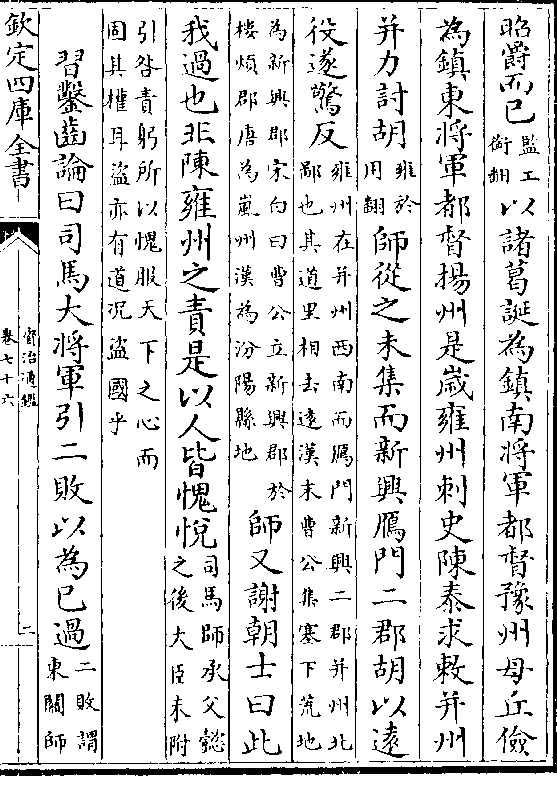 昭爵而已監工衘翻以諸葛誕為鎮南將軍都督豫州毋丘儉
為鎮東將軍都督揚州是歲雍州刺史陳泰求敕并州
并力討胡雍於用翻師從之未集而新興鴈門二郡胡以遠
役遂驚反雍州在并州西南而鴈門新興二郡并州北鄙也其道里相去遠漢末曹公集塞下荒地
為新興郡宋白曰曹公立新興郡於樓煩郡唐為嵐州漢為汾陽縣地師又謝朝士曰此
我過也非陳雍州之責是以人皆愧悅司馬師承父懿之後大臣未附
引咎責躬所以愧服天下之心而固其權耳盜亦有道况盜國乎
習鑿齒論曰司馬大將軍引二敗以為已過二敗謂東關師
欽定四庫全書
資治通鑑
卷七十六
二